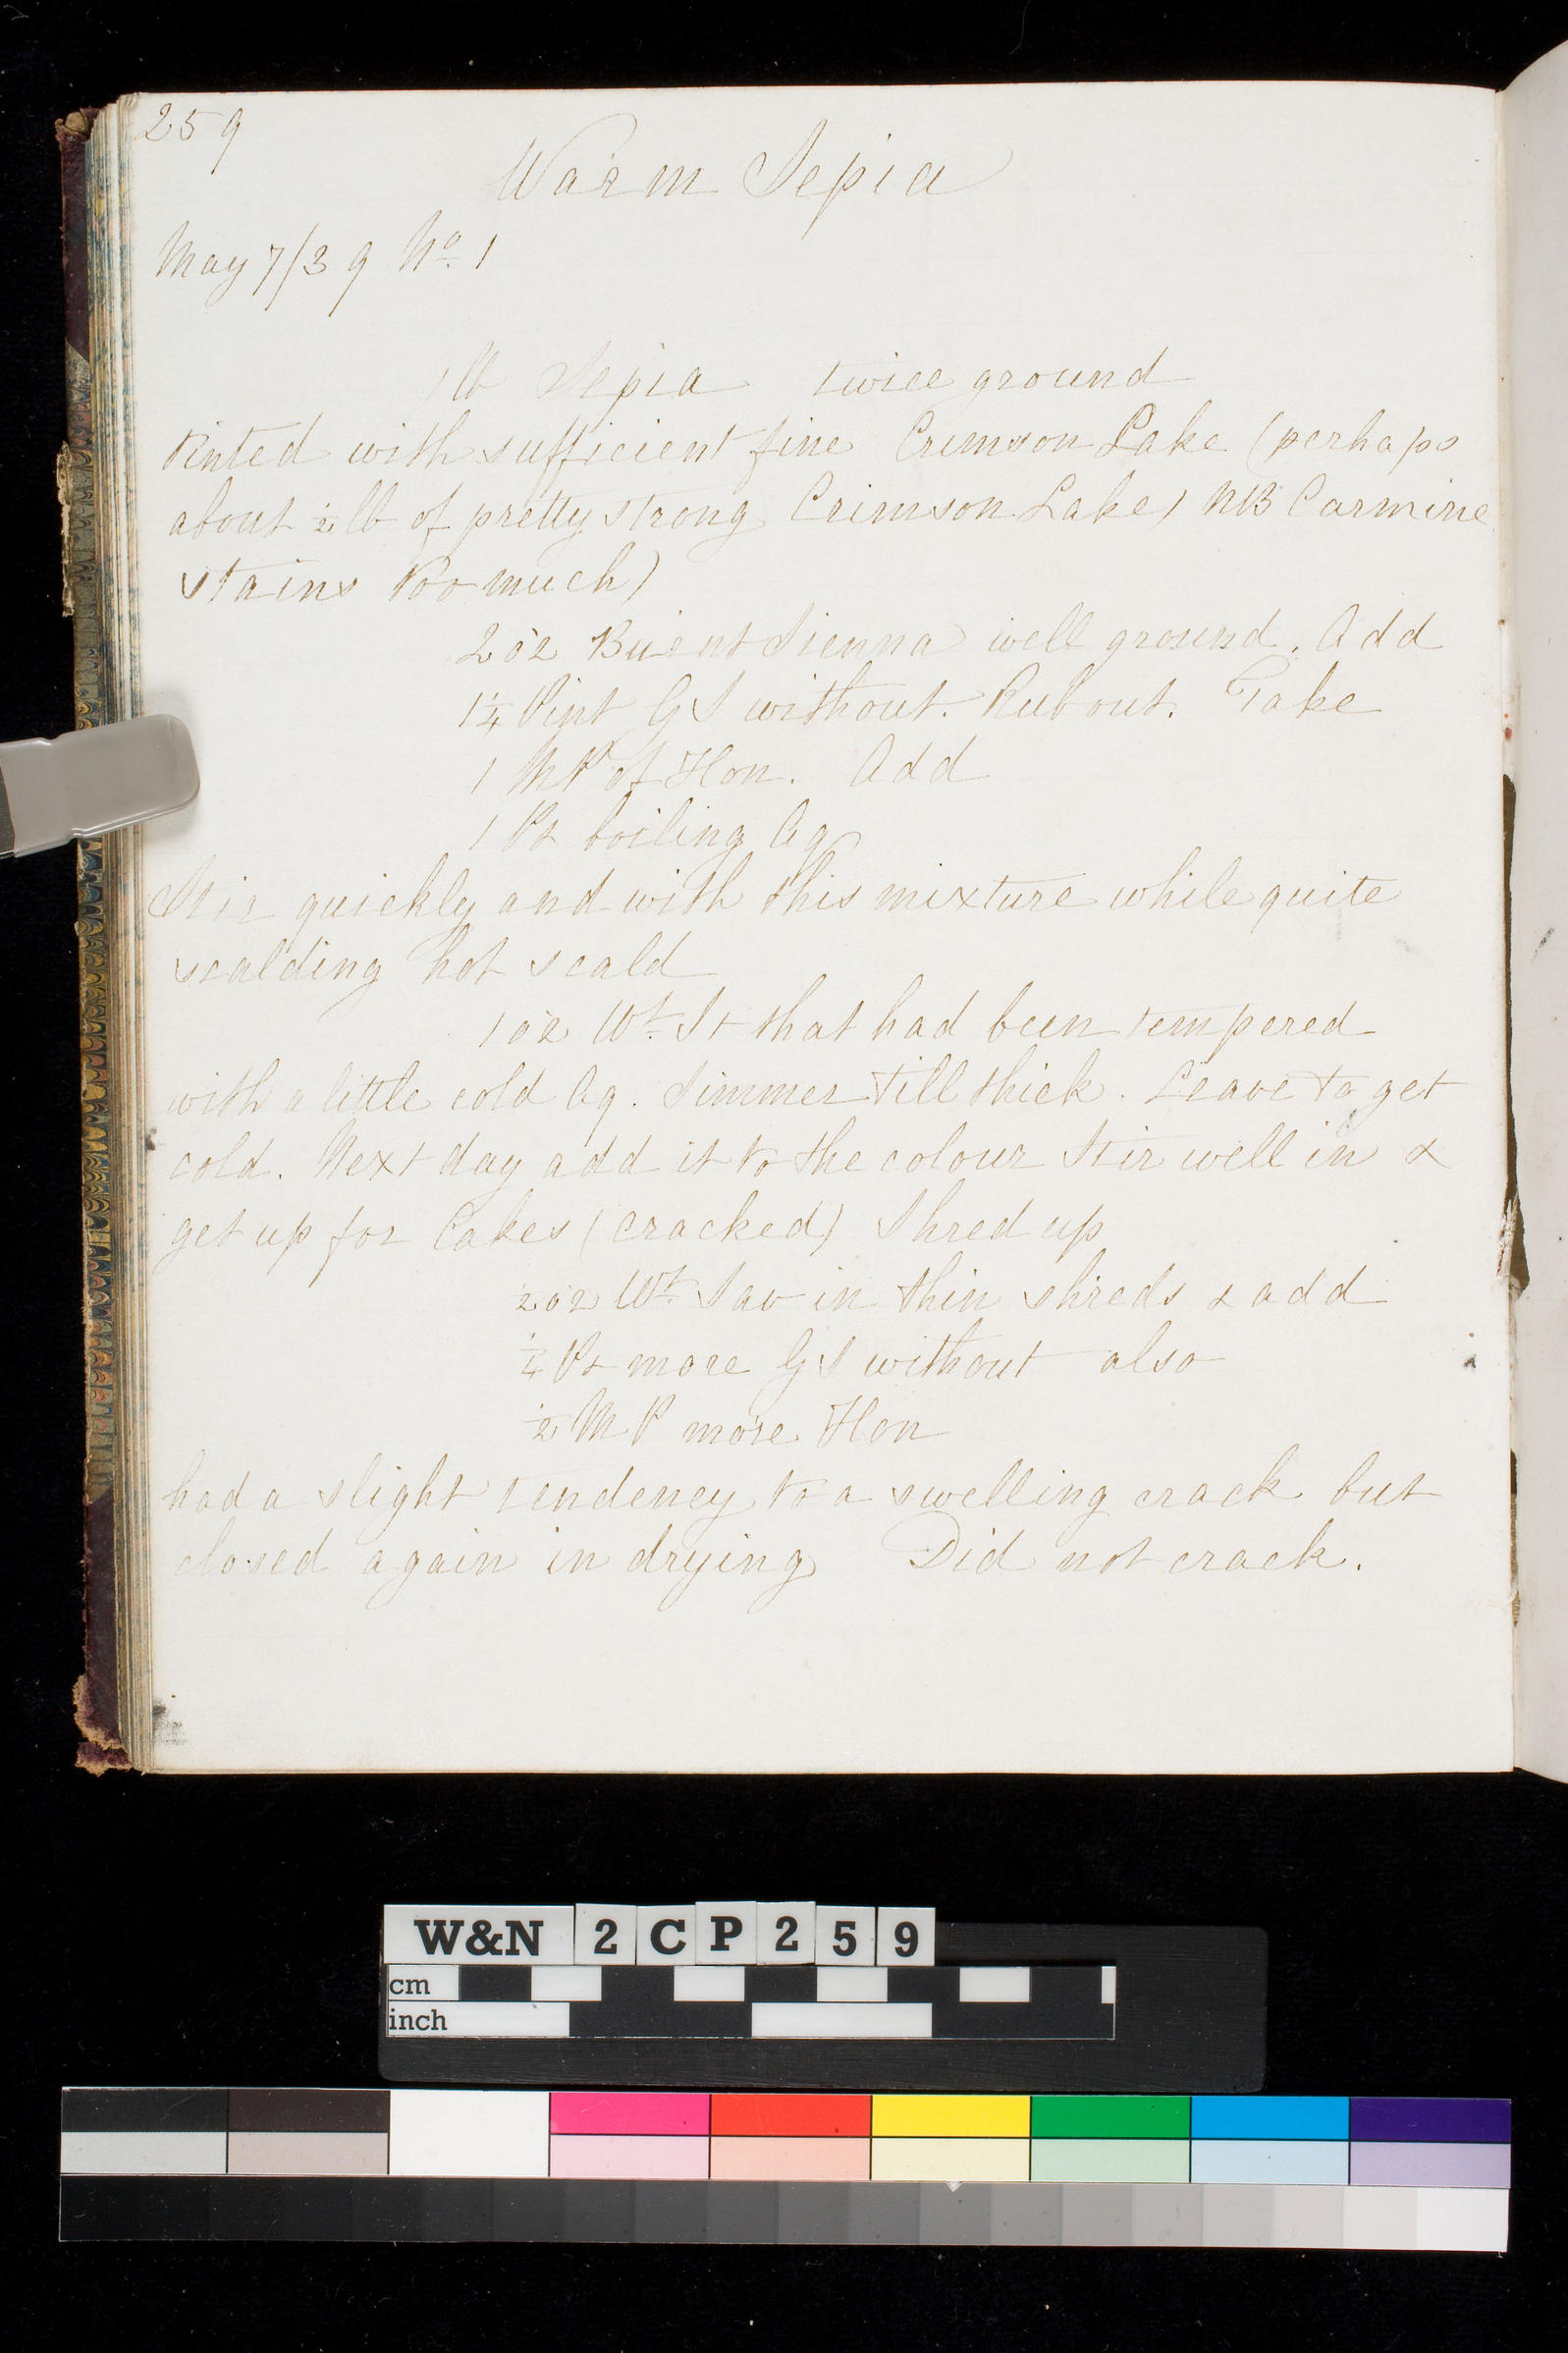 259
Warm Sepia
May 7/39 No. 1
1 lb Sepia twice ground
tinted with sufficient fine Crimson Lake (perhaps
about ½ lb of pretty strong Crimson Lake) NB Carmine
stains too much)
2 oz Burnt Sienna well ground. Add
1¼ Pint GS without. Rub out. Take
1 MP of Hon. Add
1 Pt boiling Aq
Stir quickly and with this mixture while quite
scalding hot scald
1 oz Wt. St that had been tempered
with a little cold Aq. Simmer till thick. Leave to get
cold. Next day add it to the colour Stir well in &
get up for Cakes (cracked) Shred up
2 oz Wt. Sav in thin shreds & add
¼ Pt more GS without also
½ MP more Hon
had a slight tendency to a swelling crack but
closed again in drying Did not crack.
W&N 2CP259
cm
inch